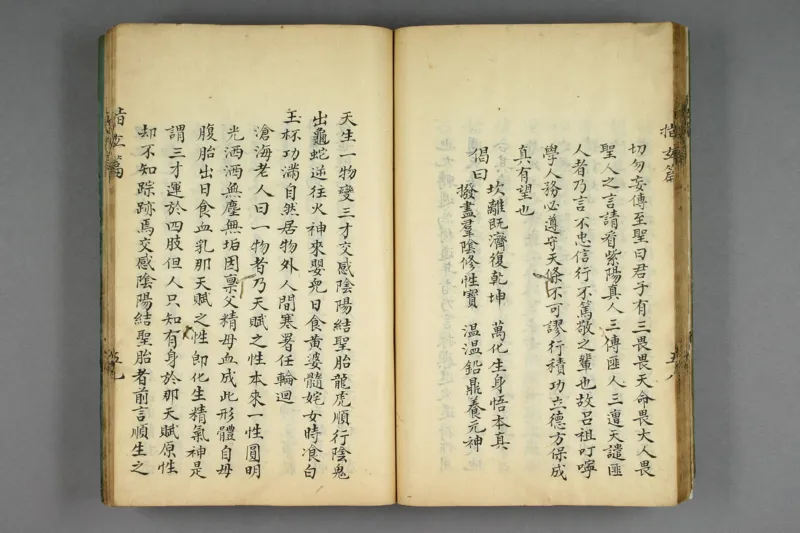 切勿妄傳至聖曰君子有三畏畏天命畏大人畏
聖人之言請看紫陽真人三傳匪人三遭天譴匪
人者乃言不忠信行不篤敬之輩也故吕祖叮嚀
學人務必遵守天條不可謬行積功立德方保成
真有望也
坎離既濟復乾坤 萬化生身悟本真
偈曰
撥盡羣陰修性寶 温温鉛鼎養元神
天生一物變三才交感陰陽結聖胎龍虎順行陰鬼
出龜蛇逆往火神來嬰兒日食黄婆髓姹女時飡白
玉杯功滿自然居物外人間寒暑任輪迴
滄海老人曰一物者乃天賦之性本來一性圓明
光洒洒無塵無垢因稟父精母血成此形體自母
腹胎出日食血乳那天賦之性即化生精氣神是
謂三才運於四肢但人只知有身於那天賦原性
却不知踪跡焉交感陰陽結聖胎者前言順生之